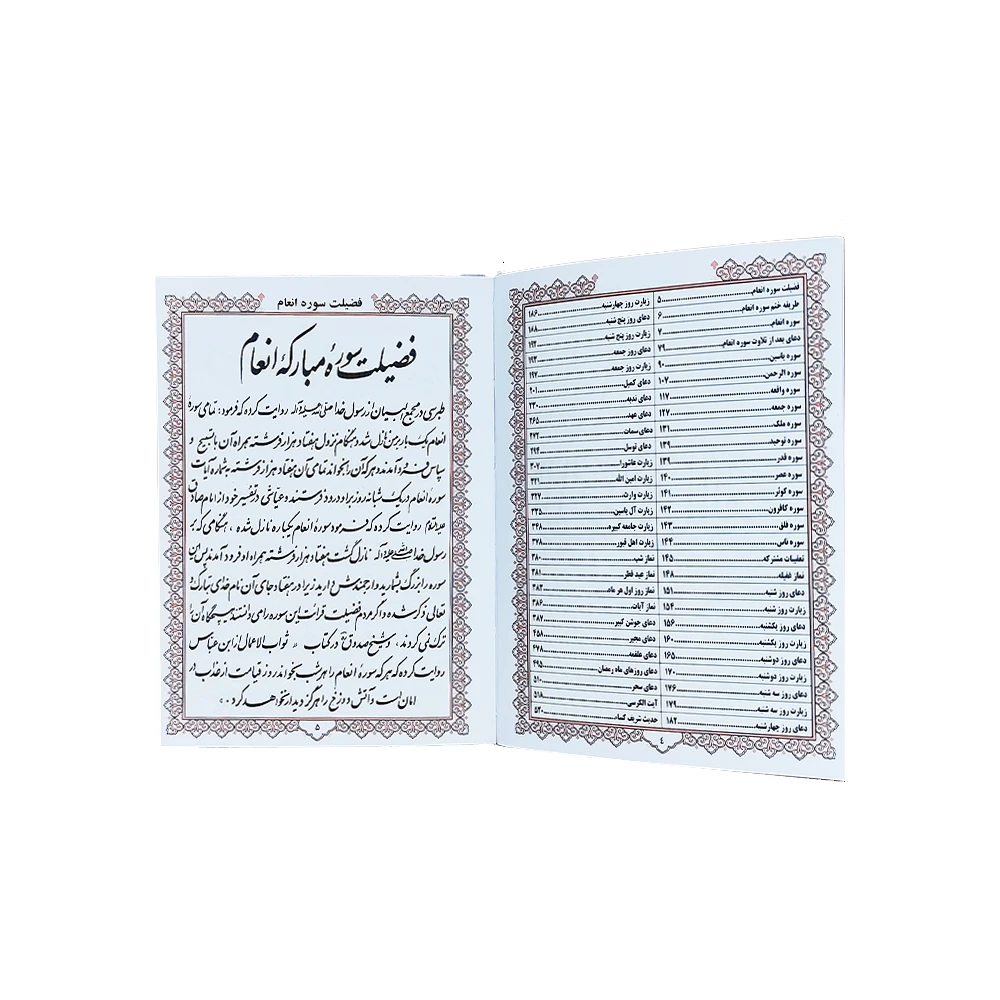 فضیلت سوره انعام ۵
طریقه ختم سوره انعام ۶
سوره انعام ۷
دعای بعد از تلاوت سوره انعام ۷۹
سوره یاسین ۹۰
سوره الرحمن ۱۰۷
سوره واقعه ۱۱۷
سوره جمعه ۱۲۷
سوره ملک ۱۳۱
سوره توحید ۱۳۹
سوره قدر ۱۳۹
سوره عصر ۱۴۰
سوره کوثر ۱۴۱
سوره کافرون ۱۴۲
سوره فلق ۱۴۳
سوره ناس ۱۴۴
تعقیبات مشترکه ۱۴۵
نماز غفیله ۱۴۸
دعای روز شنبه ۱۵۱
زیارت روز شنبه ۱۵۴
دعای روز یکشنبه ۱۵۶
زیارت روز یکشنبه ۱۶۰
دعای روز دوشنبه ۱۶۵
زیارت روز دوشنبه ۱۷۰
دعای روز سه شنبه ۱۷۶
زیارت روز سه شنبه ۱۷۹
دعای روز چهارشنبه ۱۸۲
زیارت روز چهارشنبه ۱۸۶
دعای روز پنج شنبه ۱۸۸
زیارت روز پنج شنبه ۱۹۲
دعای روز جمعه ۱۹۳
زیارت روز جمعه ۱۹۷
دعای کمیل ۲۰۱
دعای ندبه ۲۳۰
دعای عهد ۲۶۵
دعای سمات ۲۷۲
دعای توسل ۲۹۴
زیارت عاشورا ۳۰۷
زیارت امین الله ۳۲۱
زیارت وارث ۳۲۷
زیارت آل یاسین ۳۳۵
زیارت جامعه کبیره ۳۴۸
زیارت اهل قبور ۳۷۸
نماز شب ۳۸۰
نماز عید فطر ۳۸۱
نماز روز اول هر ماه ۳۸۲
نماز آیات ۳۸۶
دعای جوشن کبیر ۳۸۷
دعای مجیر ۴۵۸
دعای علقمه ۴۷۸
دعای روزهای ماه رمضان ۴۹۵
دعای سحر ۵۱۰
آیت الکرسی ۵۱۸
حدیث شریف کساء ۵۲۰
۴
فضیلت سوره انعام
فضیلت سوره مبارکه انعام
طبرسی در مجمع البیان از رسول خدا صلی الله علیه و آله روایت کرده که فرمود: تمامی سوره
انعام یک بار بر من نازل شد و هنگام نزول هفتاد هزار فرشته همراه آن با تسبیح و
سپاس فرود آمدند و هر که آن را بخواند تمامی آن هفتاد هزار فرشته به شماره آیات
سوره انعام در یک شبانه روز بر او درود فرستند و عیاشی در تفسیر خود از امام صادق
علیه السلام روایت کرده که فرمود سوره انعام یکباره نازل شده ، هنگامی که بر
رسول خدا صلی الله علیه و آله نازل گشت هفتاد هزار فرشته همراه او فرود آمدند پس این
سوره را بزرگ بشمارید و ارجمندش دارید زیرا در هفتاد جای آن نام خدای تبارک و
تعالی ذکر شده و اگر مردم فضیلت قرائت این سوره را می دانستند هیچگاه آن را
ترک نمی کردند ، و شیخ صدوق در کتاب « ثواب الاعمال از ابن عباس
روایت کرده که هر که سوره انعام را هر شب بخواند روز قیامت از عذاب در
امان است و آتش دوزخ را هرگز به دیدار نخواهد کرد . »
۵